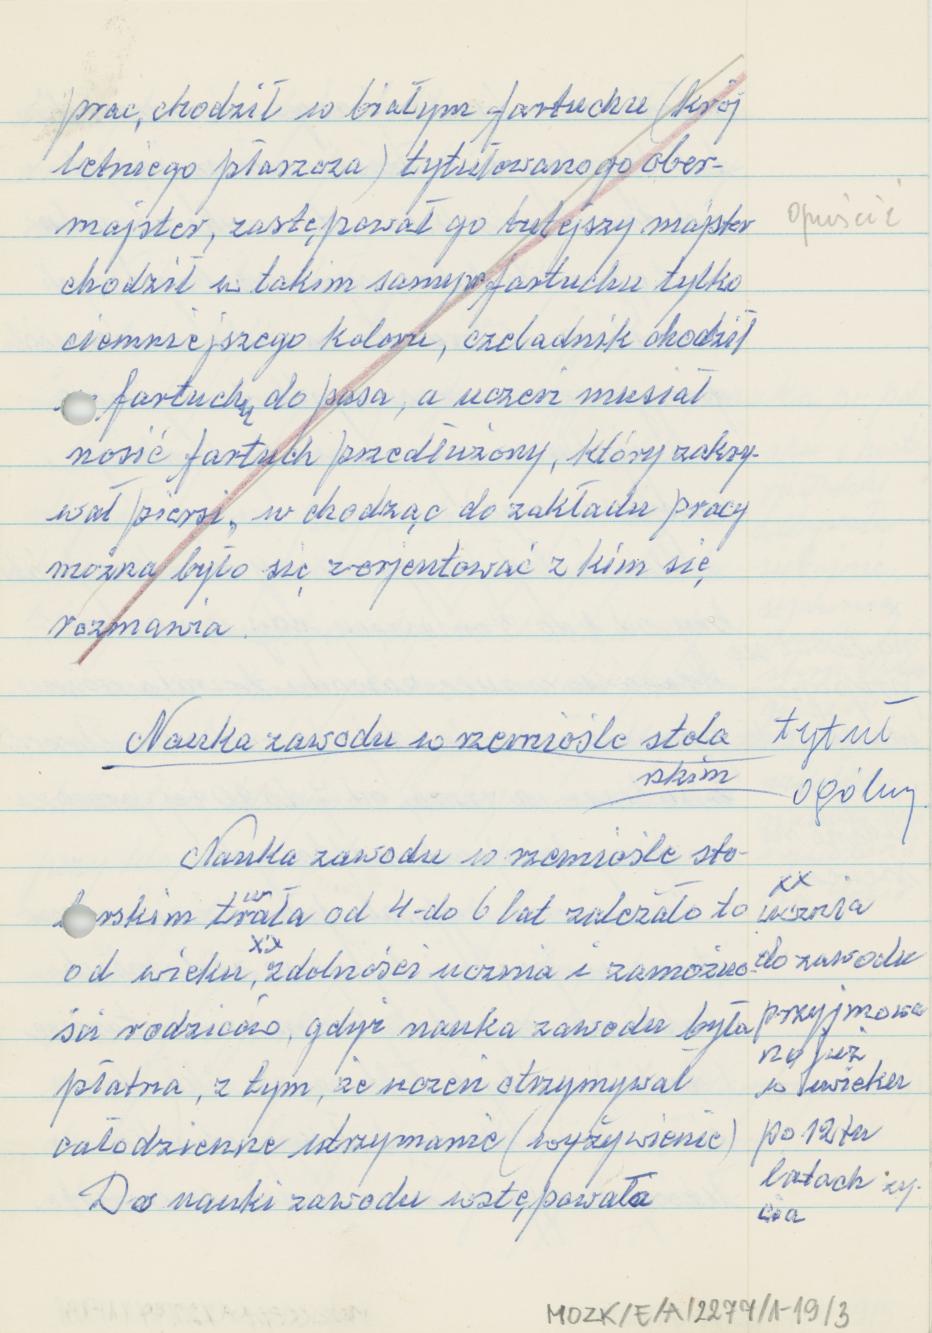 prac, chodził w białym fartuchu (krój
letniego płaszcza) tytułowano go ober-
majster, zastępował go tutejszy majster
chodził w takim samym fartuchu tylko
ciemniejszego koloru, czeladnik chodził
fartuchu do pasa, a uczeń musiał
nosić fartuch przedłużony, który zakry-
wał piersi, w chodząc do zakładu pracy
można było się zorjentować z kim się
rozmawia.
opuścić
Nauka zawodu w rzemiośle stola
rskim
tytuł
ogólny
Nauka zawodu w rzemiośle sto-
larskim trwała od 4-do 6 lat zależało to
od wieku, xx zdolności ucznia i zamożno-
ści rodziców, gdyż nauka zawodu była
płatna, z tym, że uczeń otrzymywał
całodzienne utrzymanie (wyżywienie)
Do nauki zawodu wstępowała
xx
ucznia
do zawodu
przyjmowa
no już
w wieku
po 12tu
latach ży-
cia
MOZK/E/A/2279/1-19/3